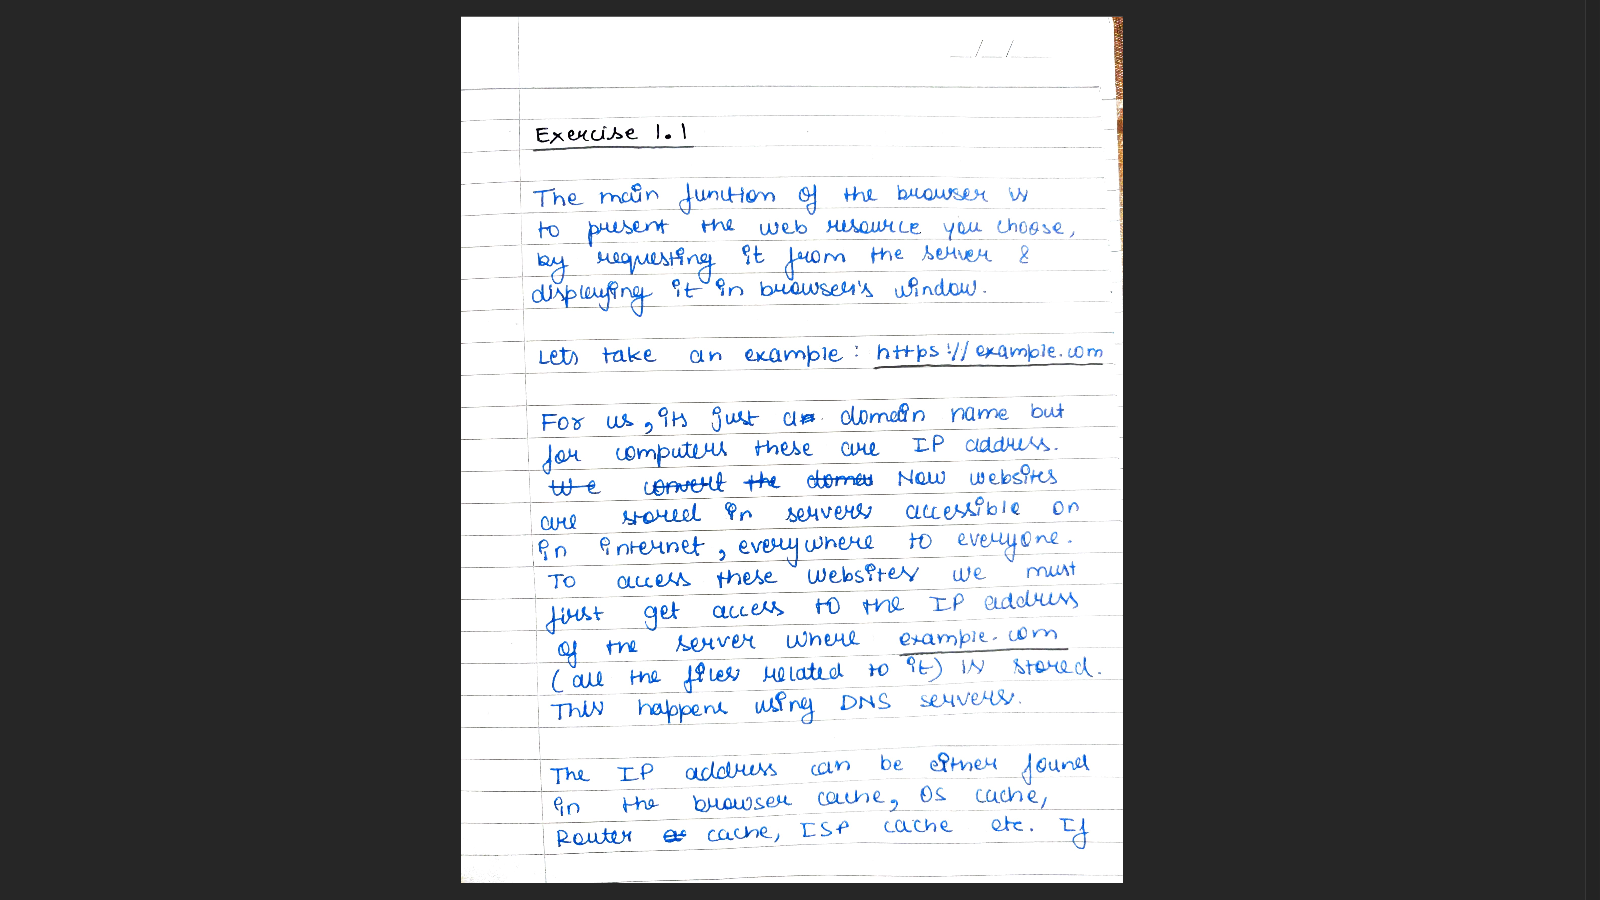 Exercise 1.1
The main function of the browser is
to present the web resource you choose,
by requesting it from the server &
displaying it in browser's window.
Lets take an example : https://example.com
For us, its just a domain name but
for computers these are IP address.
We convert the Now websites
are stored in servers accessible on
in internet, everywhere to everyone.
To access these websites we must
first get access to the IP address
of the server where example.com
(all the files related to it) is stored.
This happens using DNS servers.
The IP address can be either found
in the browser cache, OS cache,
Router cache, ISP cache etc. If